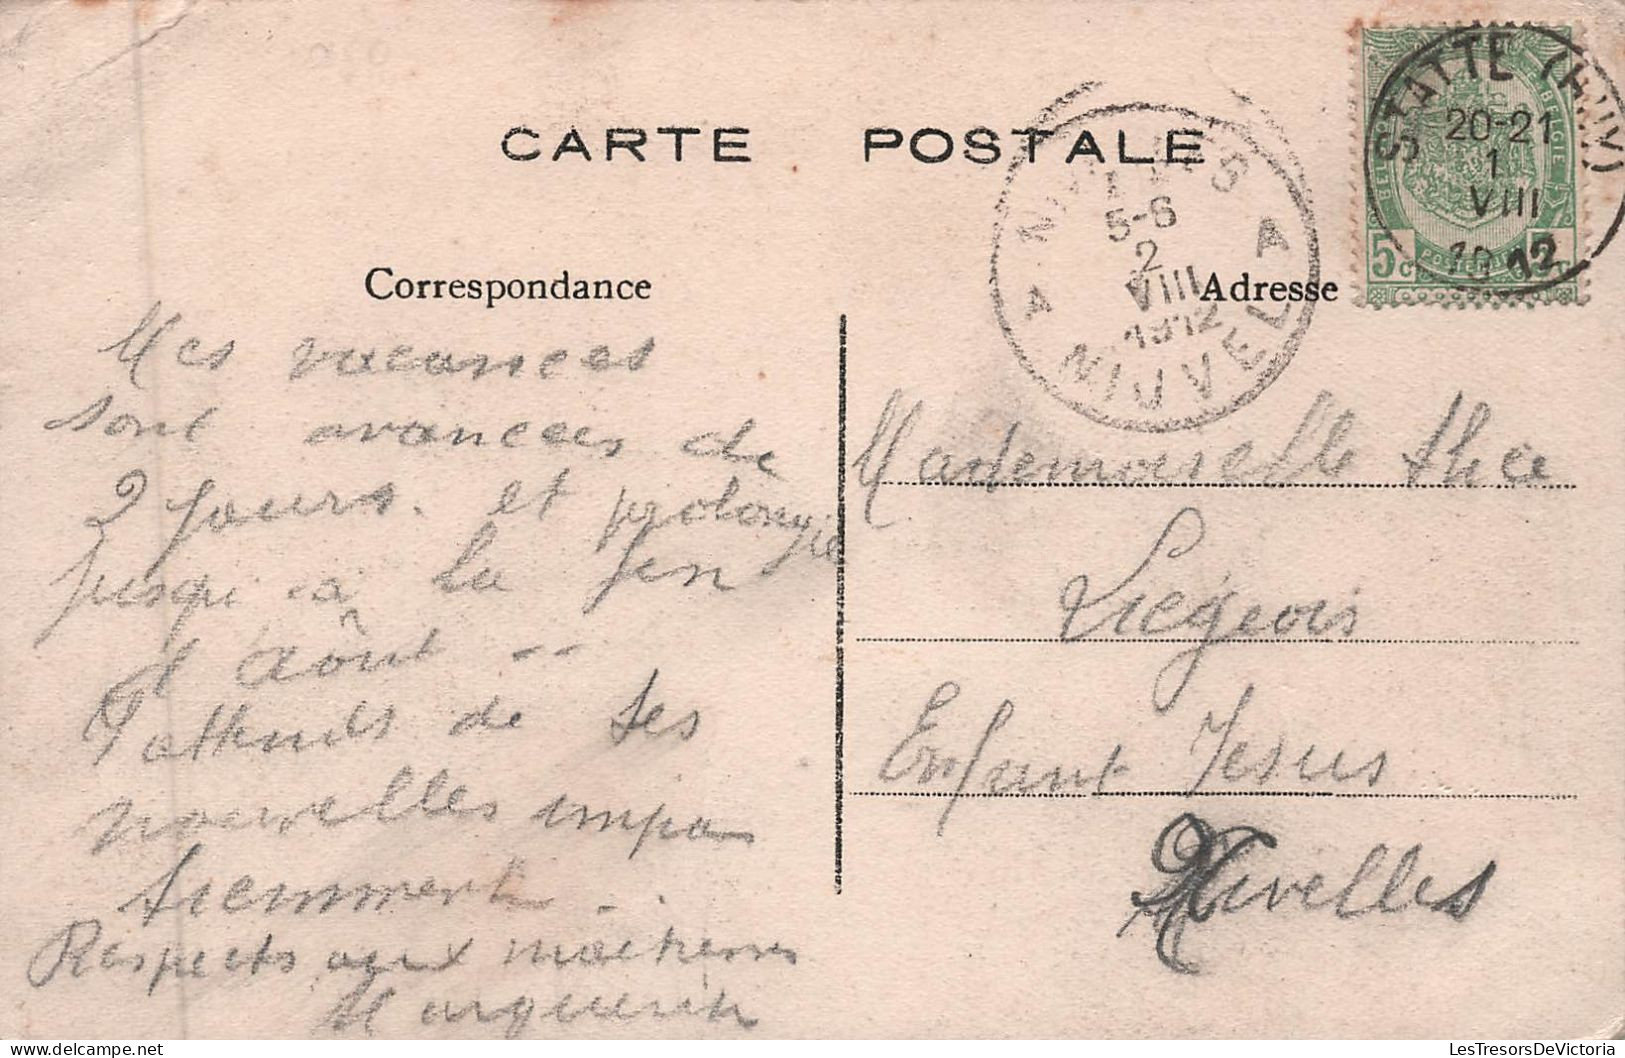 CARTE POSTALE
Correspondance
Adresse
Mes vacances
sont avancées de
2 jours. et prolongie
jusqu'à la fin
d'août --
J'attends de tes
nouvelles impa
tiemment ..
Respects aux maitresses
Marguerite
Mademoiselle Alice
Liégeois
Enfant Jesus
Nivelles
STATTE (HUY)
20-21
1
VIII
1912
NIVELLES
5-6
2
VIII
1912
NIJVEL
A A
5c
POSTERIJEN
BELGIE
LesTresorsDeVictoria